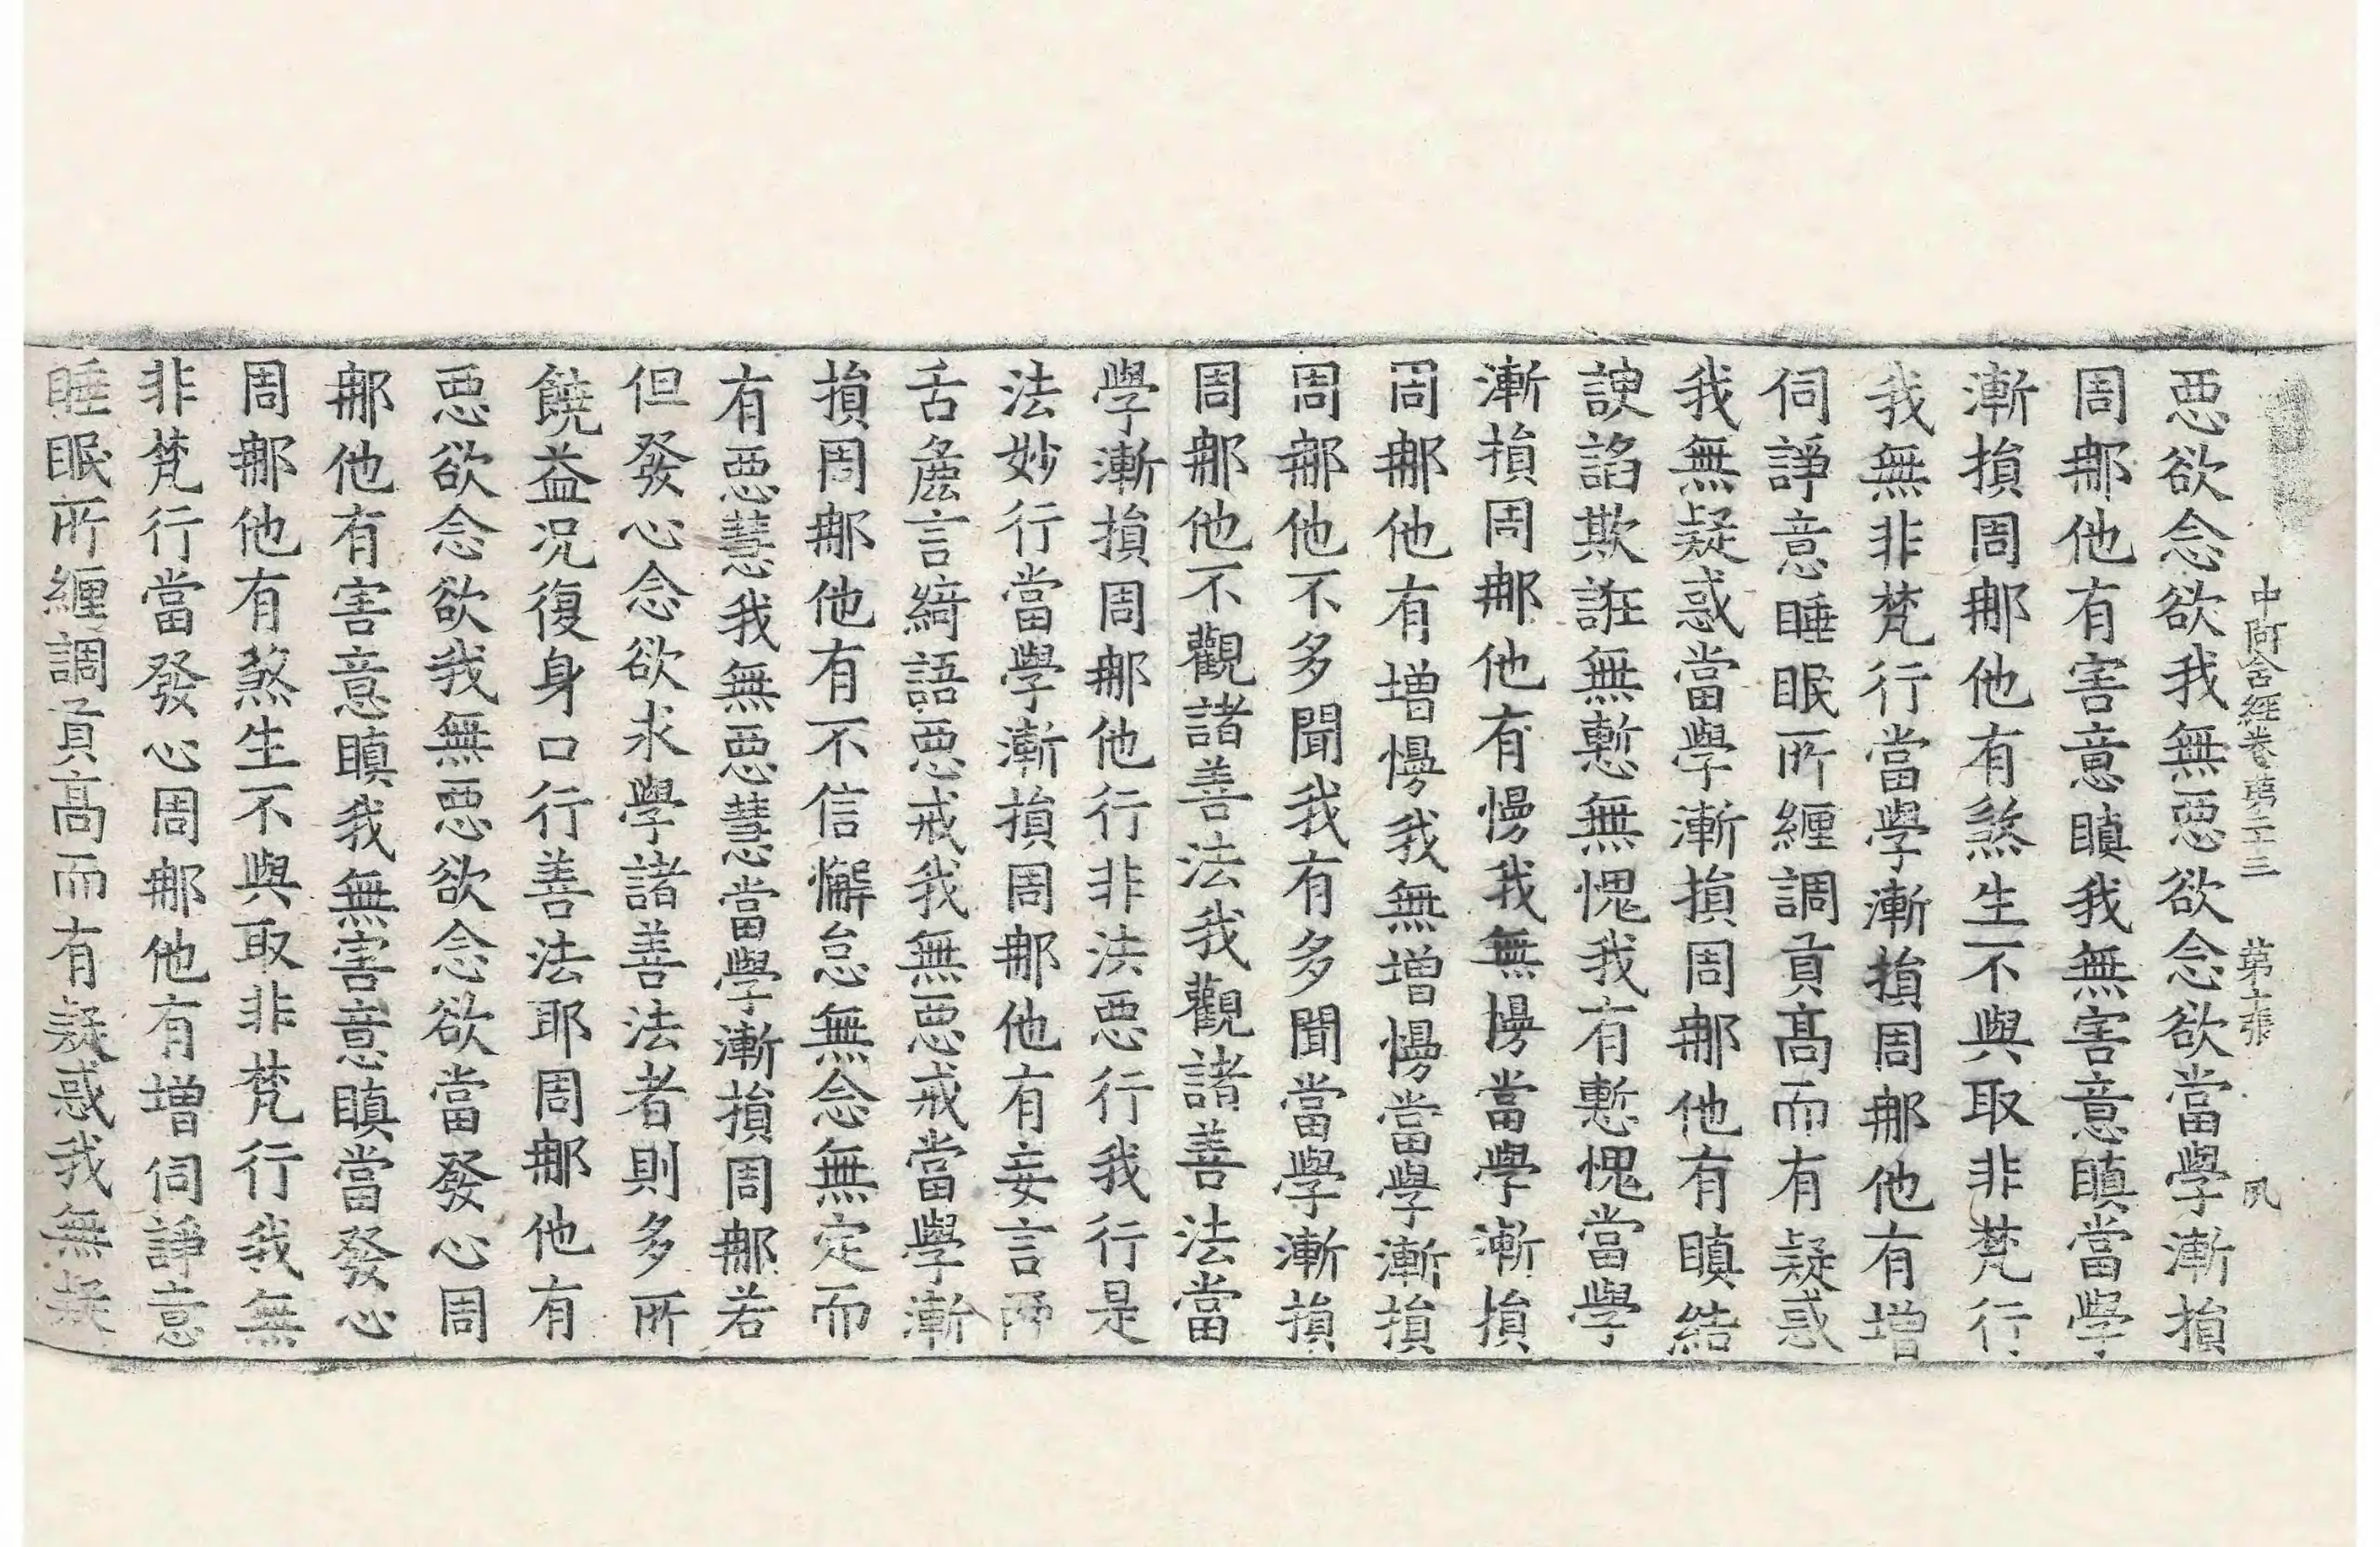 中阿含經卷第二十三　第十張　夙
惡欲念欲我無惡欲念欲當學漸損
周那他有害意瞋我無害意瞋當學
漸損周那他有煞生不與取非梵行
我無非梵行當學漸損周那他有增
伺諍意睡眠所纏調貢高而有疑惑
我無疑惑當學漸損周那他有瞋結
諛諂欺誑無慙無愧我有慙愧當學
漸損周那他有慢我無慢當學漸損
周那他有增慢我無增慢當學漸損
周那他不多聞我有多聞當學漸損
周那他不觀諸善法我觀諸善法當
學漸損周那他行非法惡行我行是
法妙行當學漸損周那他有妄言兩
舌麁言綺語惡戒我無惡戒當學漸
損周那他有不信懈怠無念無定而
有惡慧我無惡慧當學漸損周那若
但發心念欲求學諸善法者則多所
饒益况復身口行善法耶周那他有
惡欲念欲我無惡欲念欲當發心周
那他有害意瞋我無害意瞋當發心
周那他有煞生不與取非梵行我無
非梵行當發心周那他有增伺諍意
睡眠所纏調貢高而有疑惑我無疑